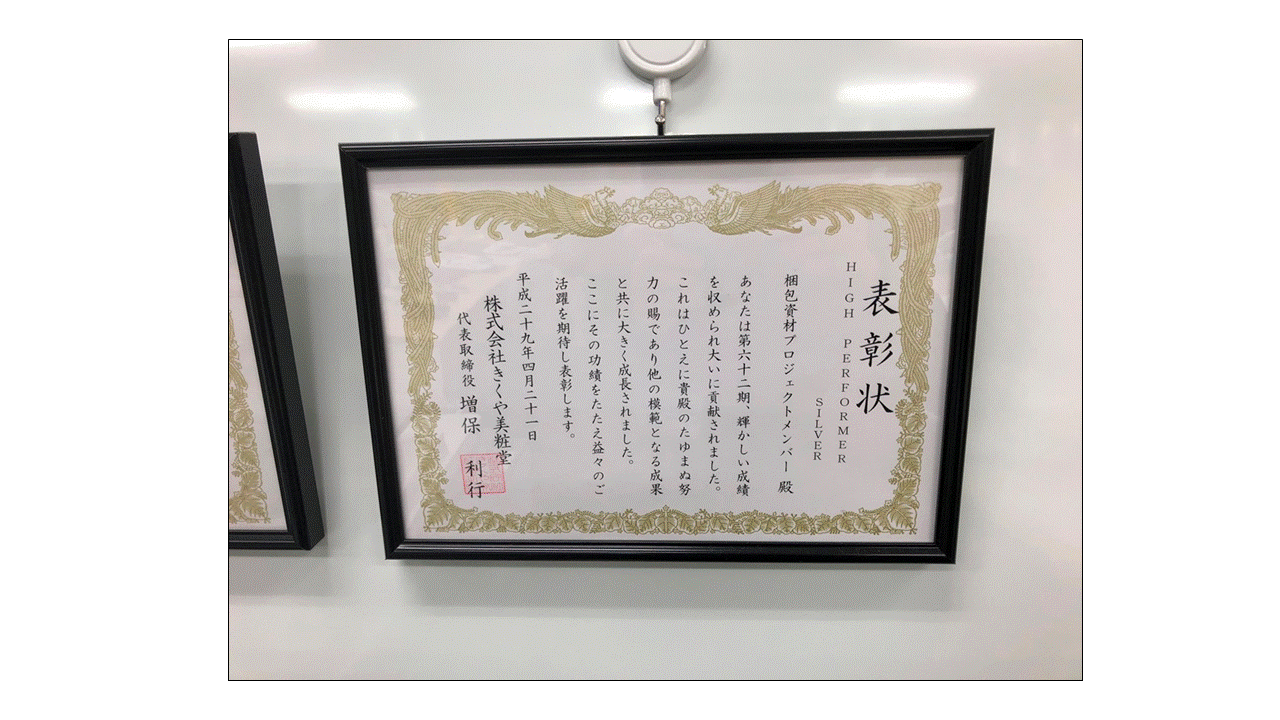 表彰状
HIGH PERFORMER
SILVER
梱包資材プロジェクトメンバー 殿
あなたは第六十二期、輝かしい成績
を収められ大いに貢献されました。
これはひとえに貴殿のたゆまぬ努
力の賜であり他の模範となる成果
と共に大きく成長されました。
ここにその功績をたたえ益々のご
活躍を期待し表彰します。
平成二十九年四月二十一日
株式会社きくや美粧堂
代表取締役 増保 利行